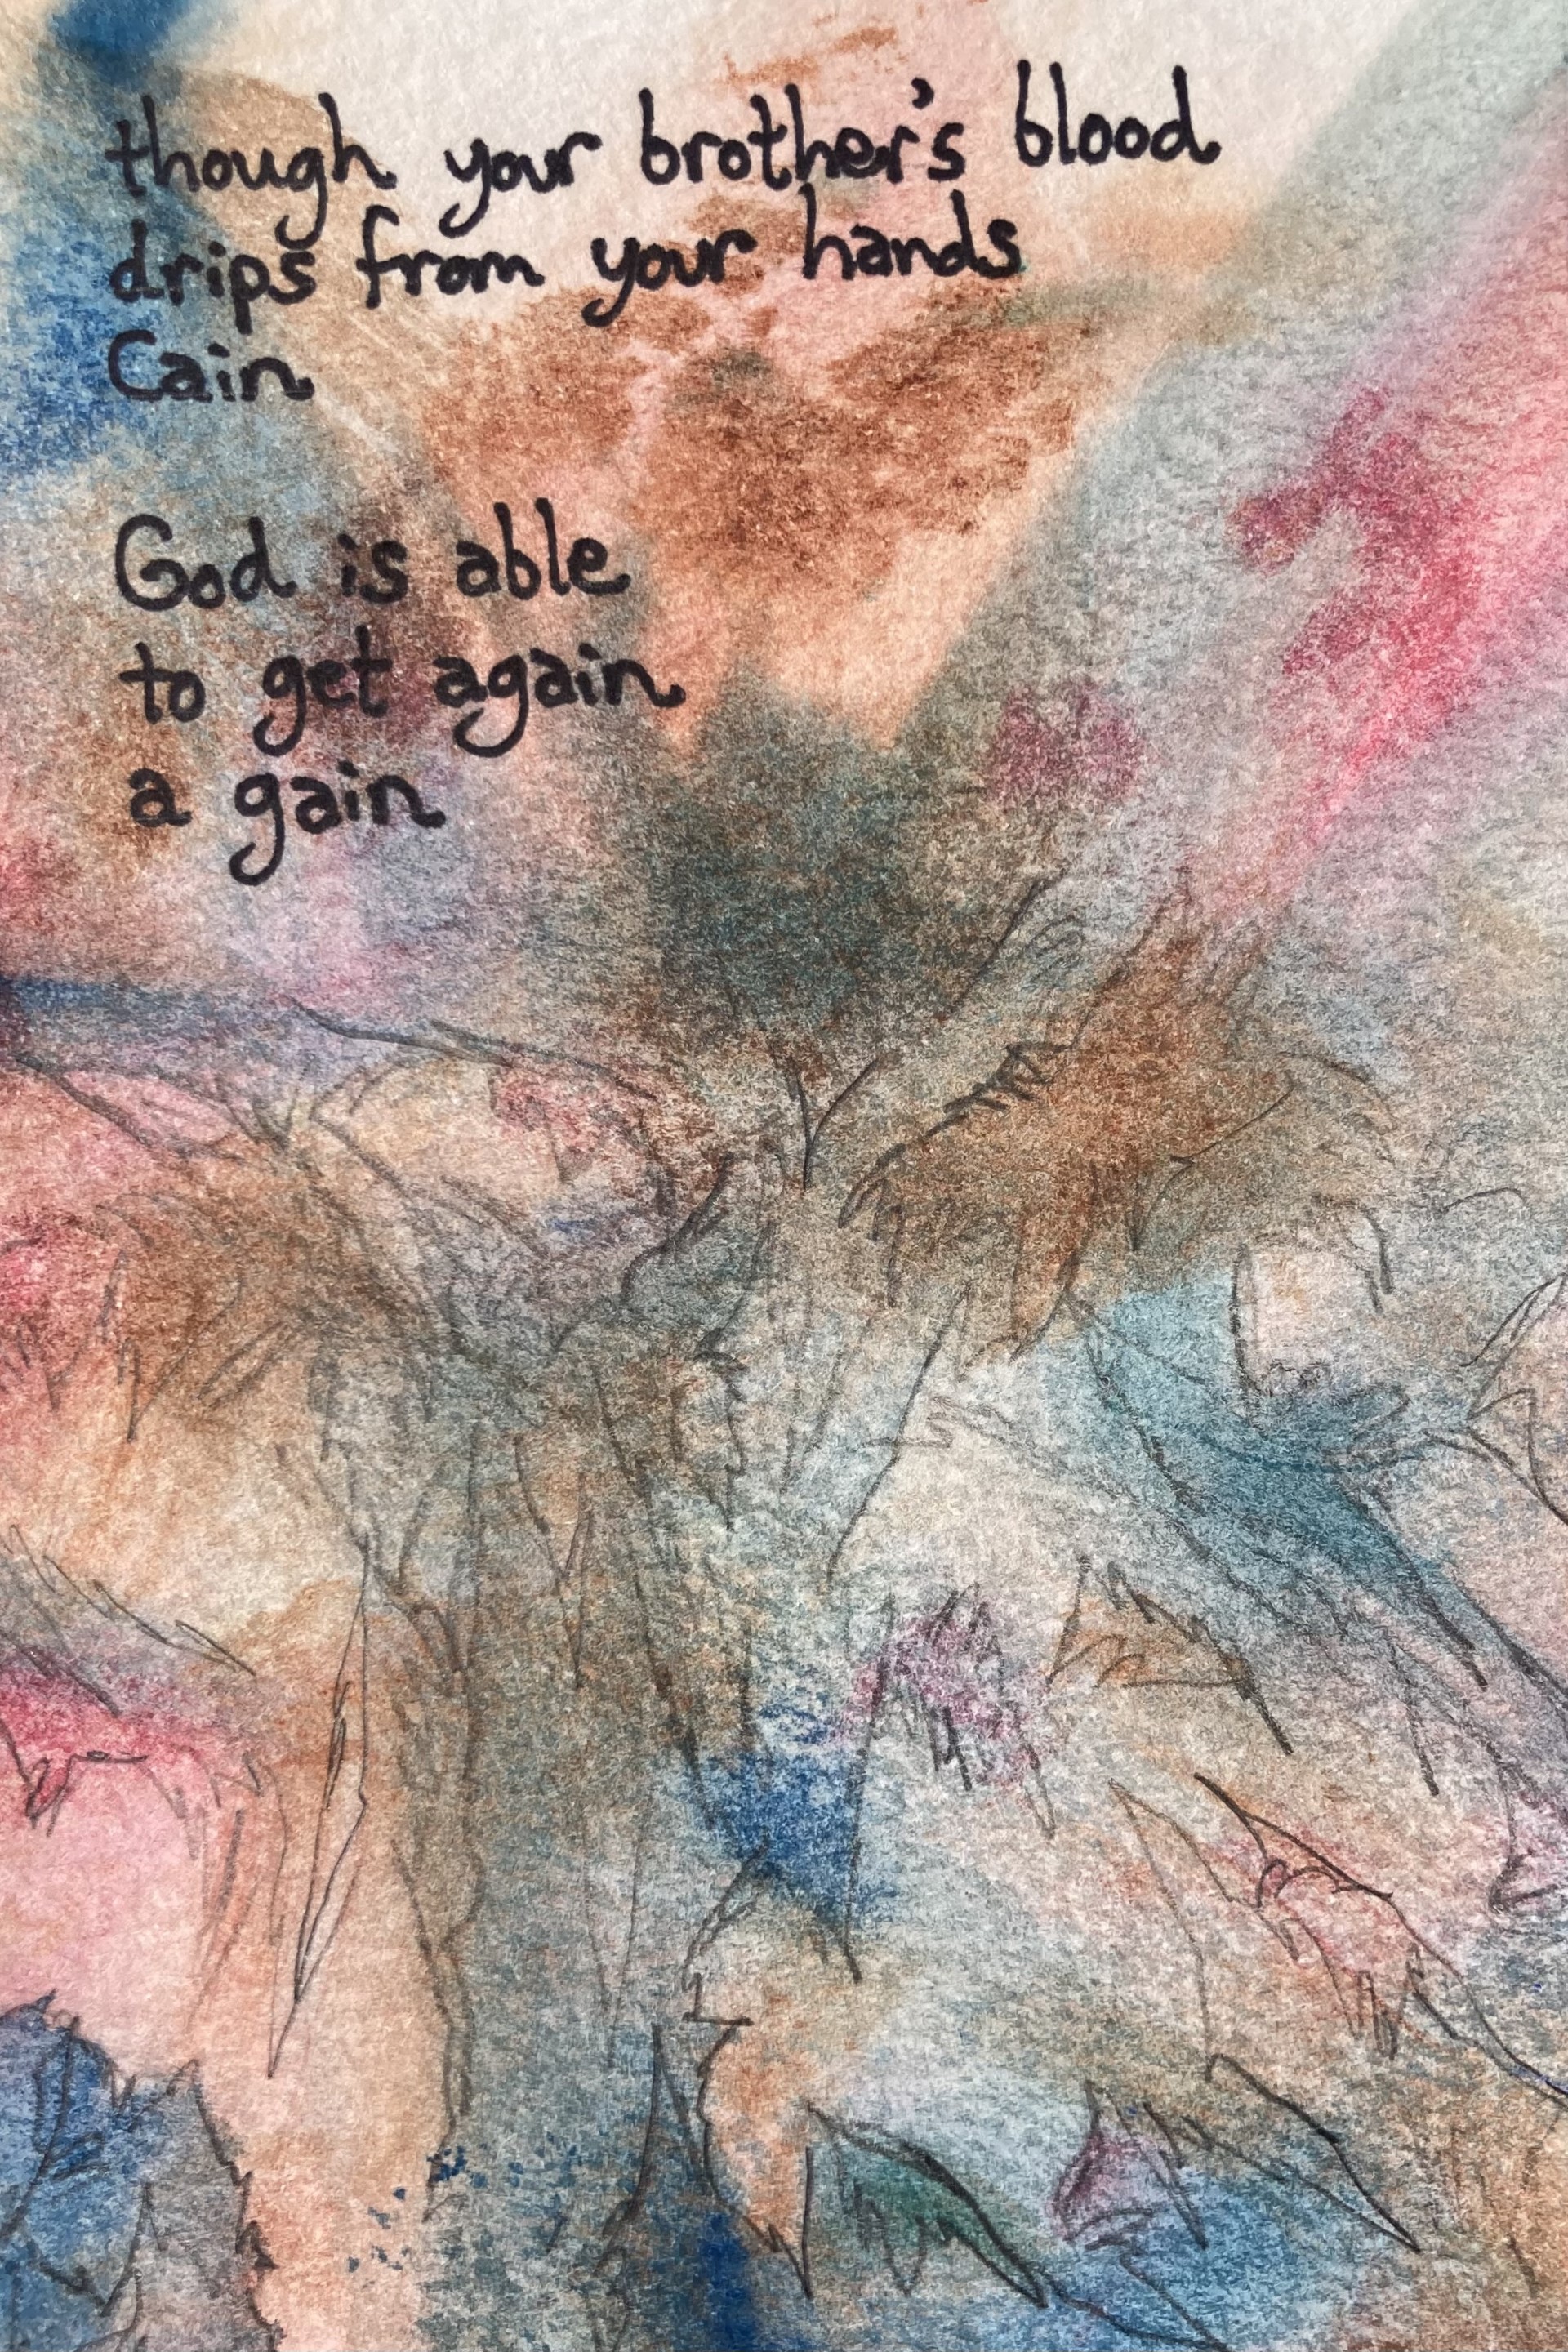 though your brother's blood
drips from your hands
Cain
God is able
to get again
a gain